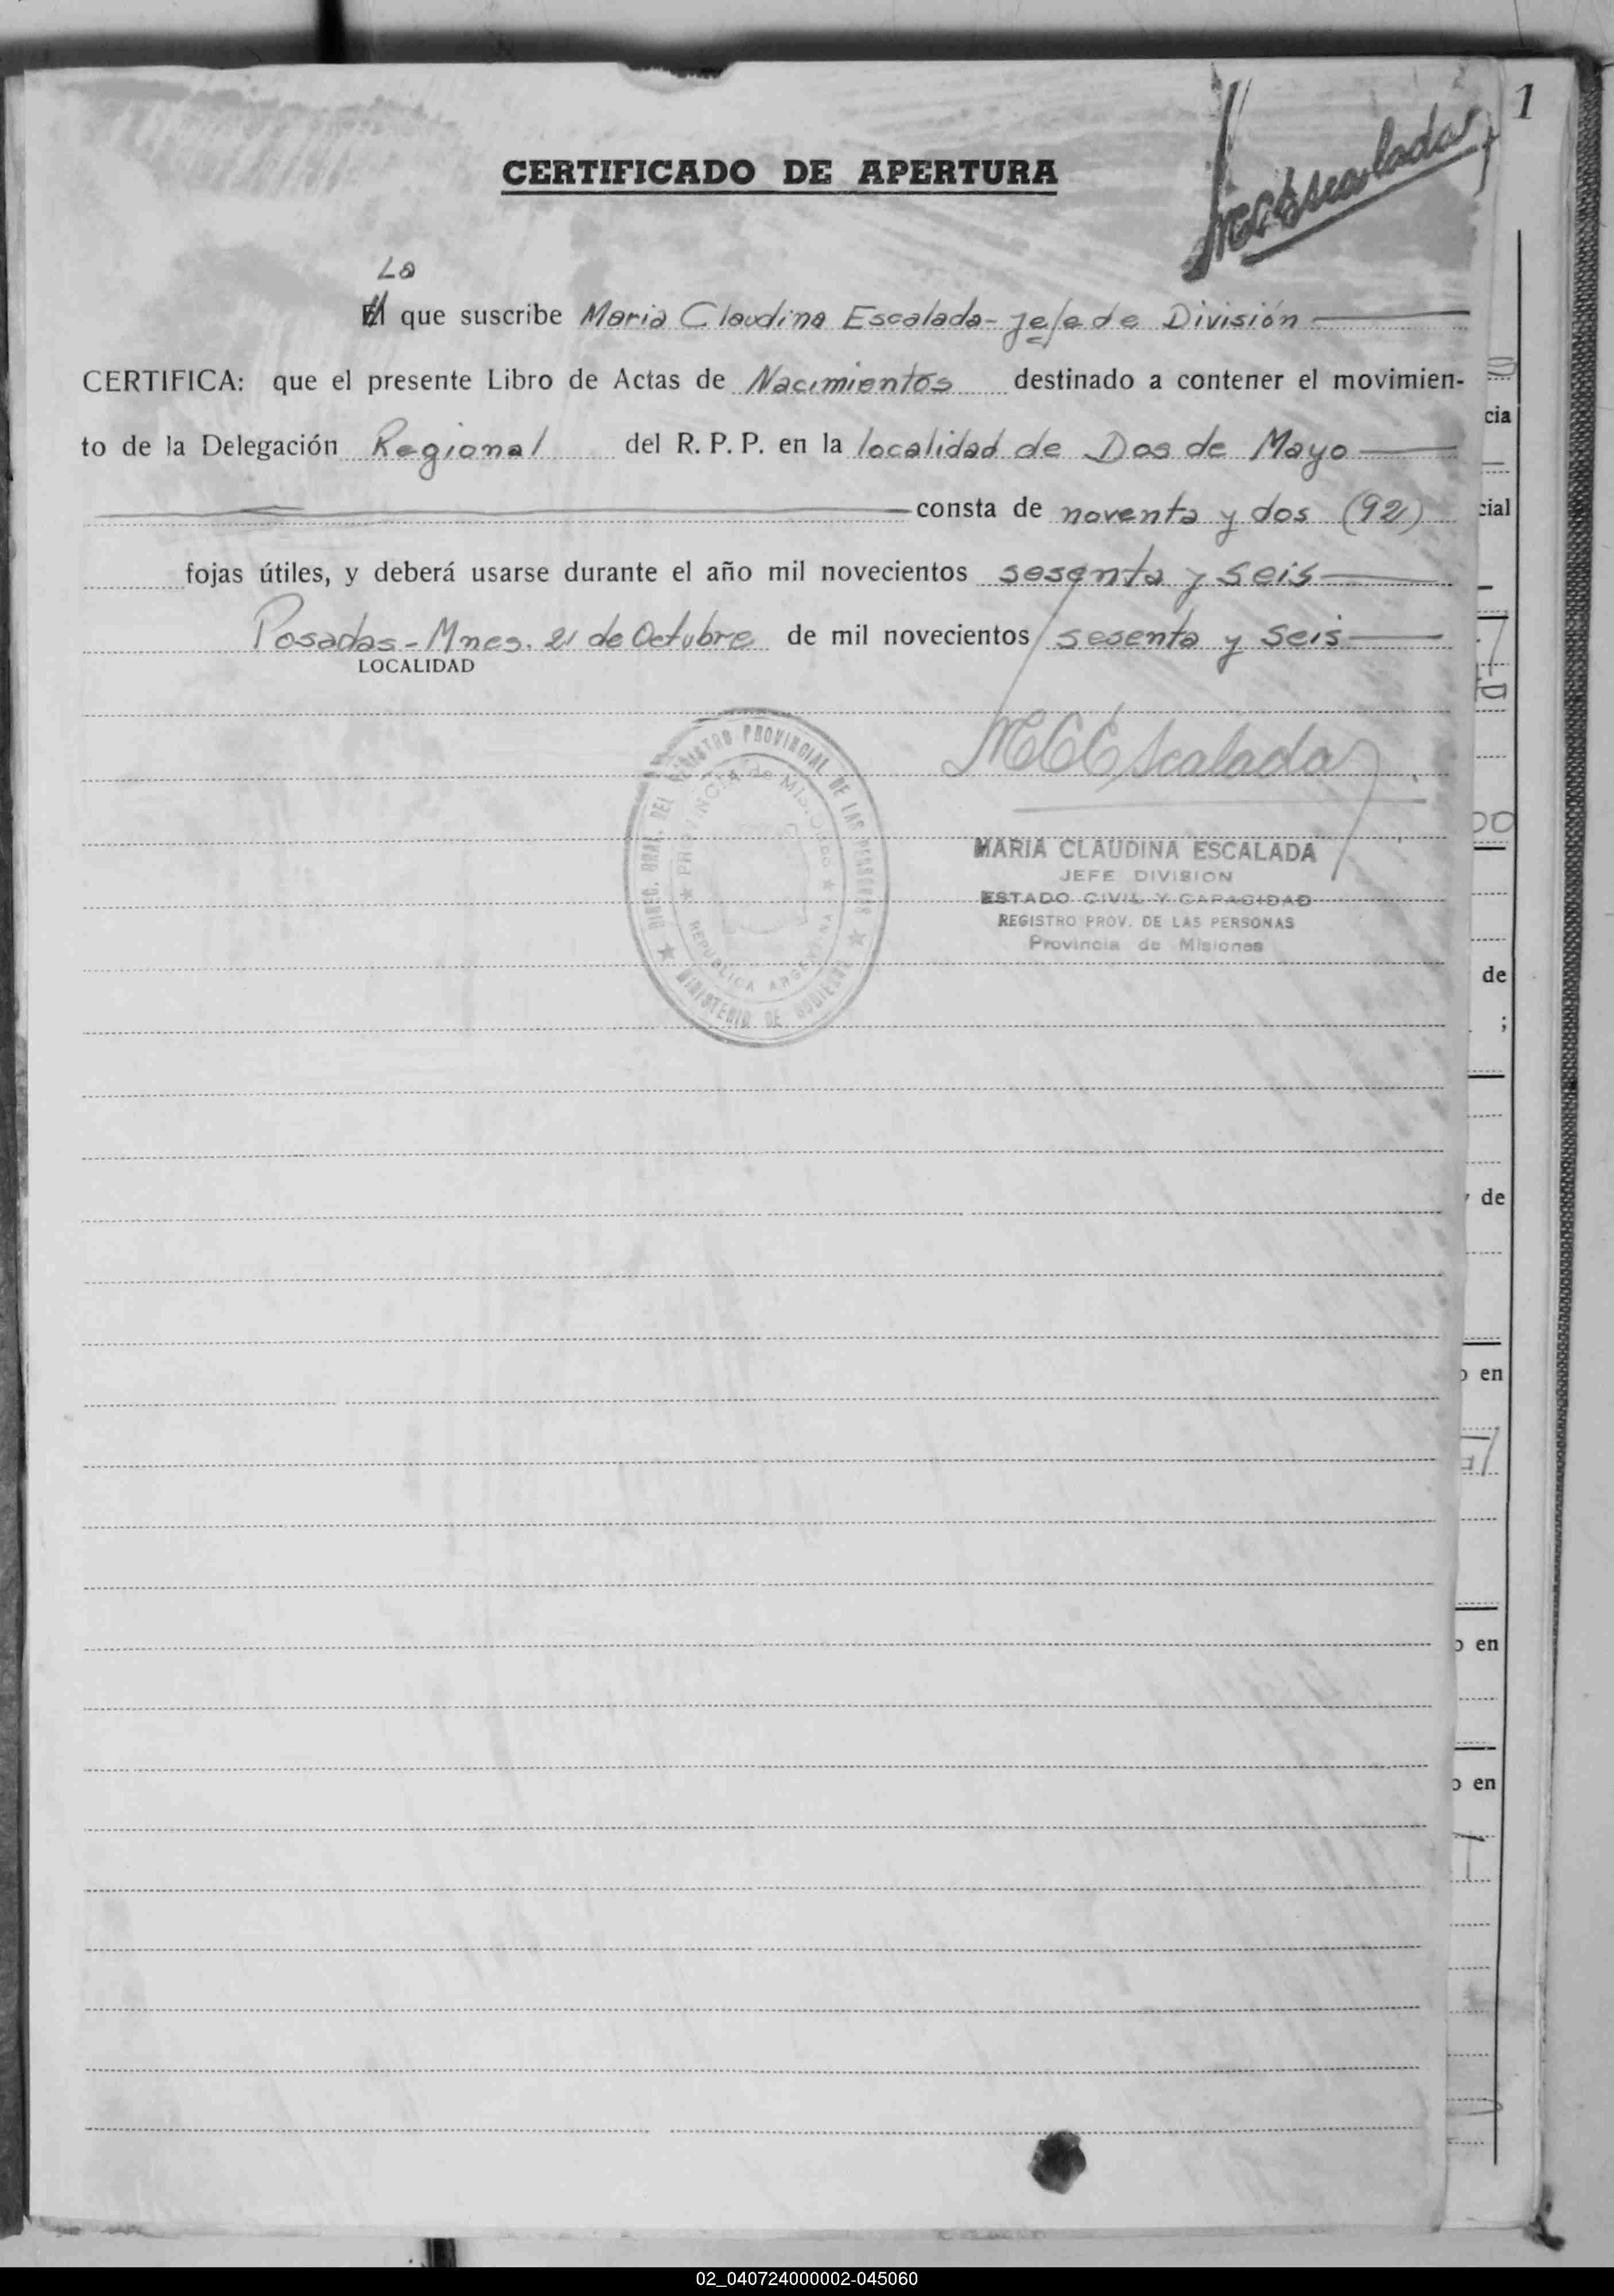 1
MCEscalada
CERTIFICADO DE APERTURA
La
El que suscribe Maria Claudina Escalada - Jefe de División
CERTIFICA: que el presente Libro de Actas de Nacimientos destinado a contener el movimien-
to de la Delegación Regional del R. P. P. en la localidad de Dos de Mayo
consta de noventa y dos (92)
fojas útiles, y deberá usarse durante el año mil novecientos sesenta y seis
Posadas - Mnes. 21 de Octubre de mil novecientos sesenta y seis
LOCALIDAD
MCCEscalada
DIREC. GRAL. DEL REGISTRO PROVINCIAL DE LAS PERSONAS
PROVINCIA de MISIONES
REPUBLICA ARGENTINA
MINISTERIO DE GOBIERNO
MARIA CLAUDINA ESCALADA
JEFE DIVISION
ESTADO CIVIL Y CAPACIDAD
REGISTRO PROV. DE LAS PERSONAS
Provincia de Misiones
cia
cial
de
;
de
o en
o en
o en
02_040724000002-045060